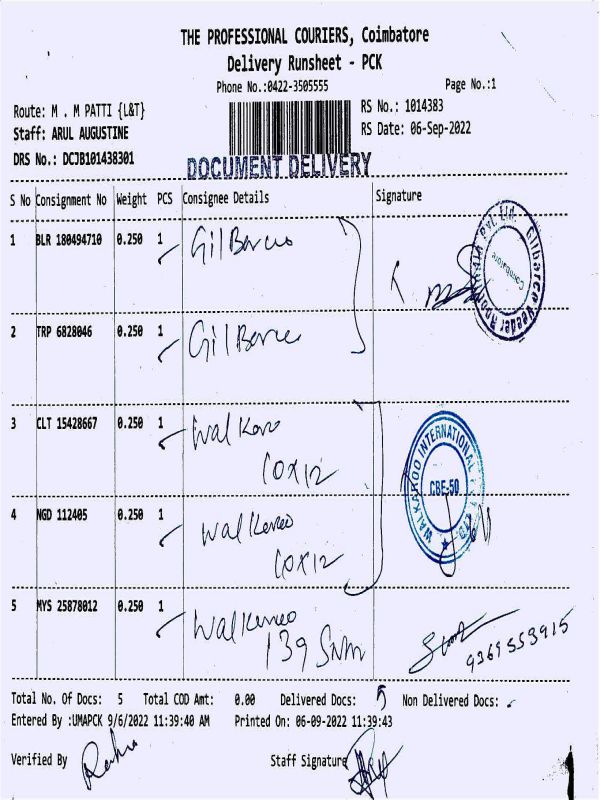 THE PROFESSIONAL COURIERS, Coimbatore
Delivery Runsheet - PCK
Phone No.:0422-3505555 Page No.:1
Route: M . M PATTI {L&T} RS No.: 1014383
Staff: ARUL AUGUSTINE RS Date: 06-Sep-2022
DRS No.: DCJB101438301
DOCUMENT DELIVERY
S No Consignment No Weight PCS Consignee Details Signature
1 BLR 180494710 0.250 1 GilBarco
Gilbarco Veeder Root India Pvt. Ltd.
Coimbatore
2 TRP 6828046 0.250 1 GilBarco
3 CLT 15428667 0.250 1 Walkaroo
10x12
WALKAROO INTERNATIONAL PVT LTD
CBE-50
4 NGD 112405 0.250 1 Walkaroo
10x12
5 MYS 25878012 0.250 1 Walkaroo
139
9361553915
Total No. Of Docs: 5 Total COD Amt: 0.00 Delivered Docs: 5 Non Delivered Docs:
Entered By :UMAPCK 9/6/2022 11:39:40 AM Printed On: 06-09-2022 11:39:43
Verified By Staff Signature